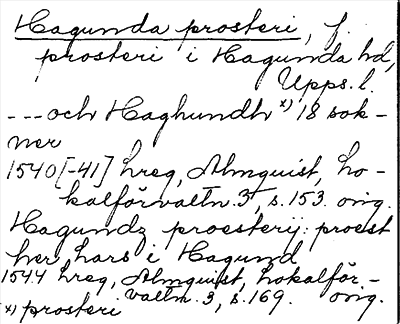 Hagunda prosteri, f.
prosteri i Hagunda hd,
Upps. l.
---och Haghundh x) 18 sok-
ner
1540[-41] hreg, Almquist, Lo-
kalförvaltn. 3, s. 153. orig.
Hagundz proesterij: proest
her Lars i Hagund
1544 hreg, Almquist, Lokalför-
valtn. 3, s. 169. orig.
x) prosteri